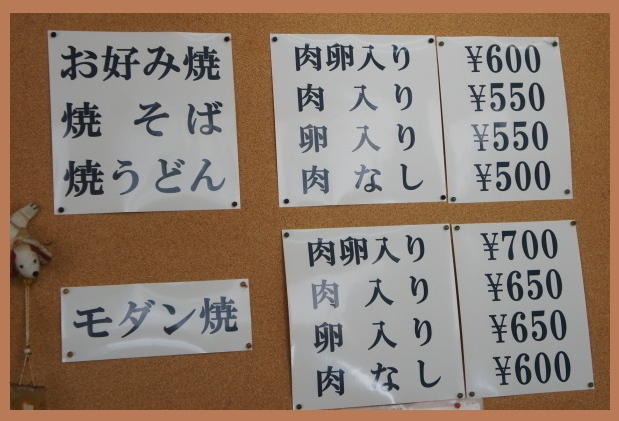 お好み焼
焼そば
焼うどん
肉卵入り ¥600
肉入り ¥550
卵入り ¥550
肉なし ¥500
モダン焼
肉卵入り ¥700
肉入り ¥650
卵入り ¥650
肉なし ¥600